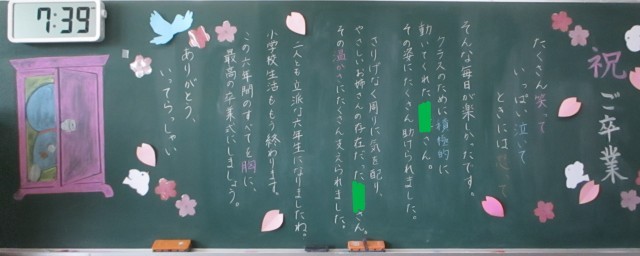 祝 ご卒業
たくさん笑って
いっぱい泣いて
ときには怒って
そんな毎日が楽しかったです。
クラスのために積極的に
動いてくれた さん。
その姿にたくさん助けられました。
さりげなく周りに気を配り、
やさしいお姉さんの存在だった さん。
その温かさにたくさん支えられました。
二人とも立派な六年生になりましたね。
小学校生活ももう終わります。
この六年間のすべてを胸に、
最高の卒業式にしましょう。
ありがとう、
いってらっしゃい
7:39